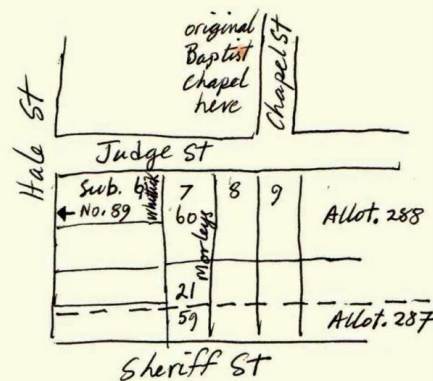 original
Baptist
chapel
here
Chapel St
Hale St
Judge St
Sub. 6
No. 89
Whittick
7
60
Morleys
21
59
8
9
Allot. 288
Allot. 287
Sheriff St